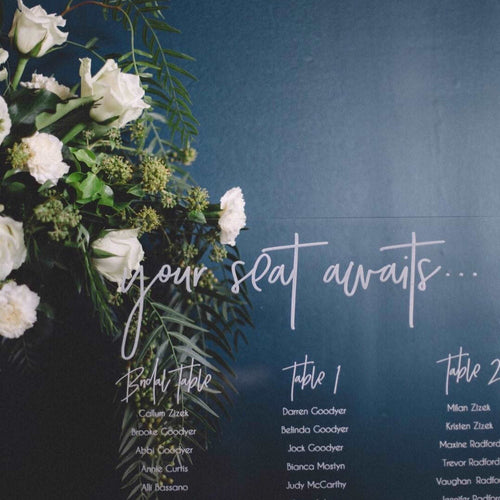 your seat awaits...
Bridal Table
Callum Zizek
Brooke Goodyer
Abbi Goodyer
Annie Curtis
Alli Bassano
Table 1
Darren Goodyer
Belinda Goodyer
Jock Goodyer
Bianca Mostyn
Judy McCarthy
Table 2
Milan Zizek
Kristen Zizek
Maxine Radford
Trevor Radford
Vaughan Radford
Jennifer Radford